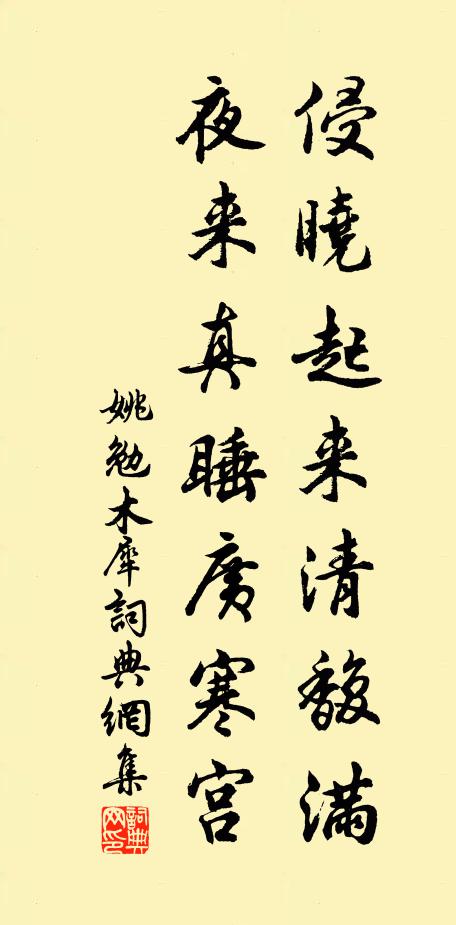 侵曉起来清馥满
夜来真睡廣寒宫
姚勉木犀詞典網集
詞典网印